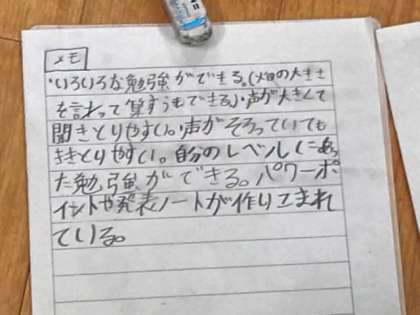 メモ
・いろいろな勉強ができる。(畑の大きさ
を言わって算すうもできる)・声が大きくて
聞きとりやすい。・声がそろっていても
ききとりやすい。自分のレベルにあっ
た勉強ができる。パワーポ
イントや発表ノートが作りこまれ
ている。